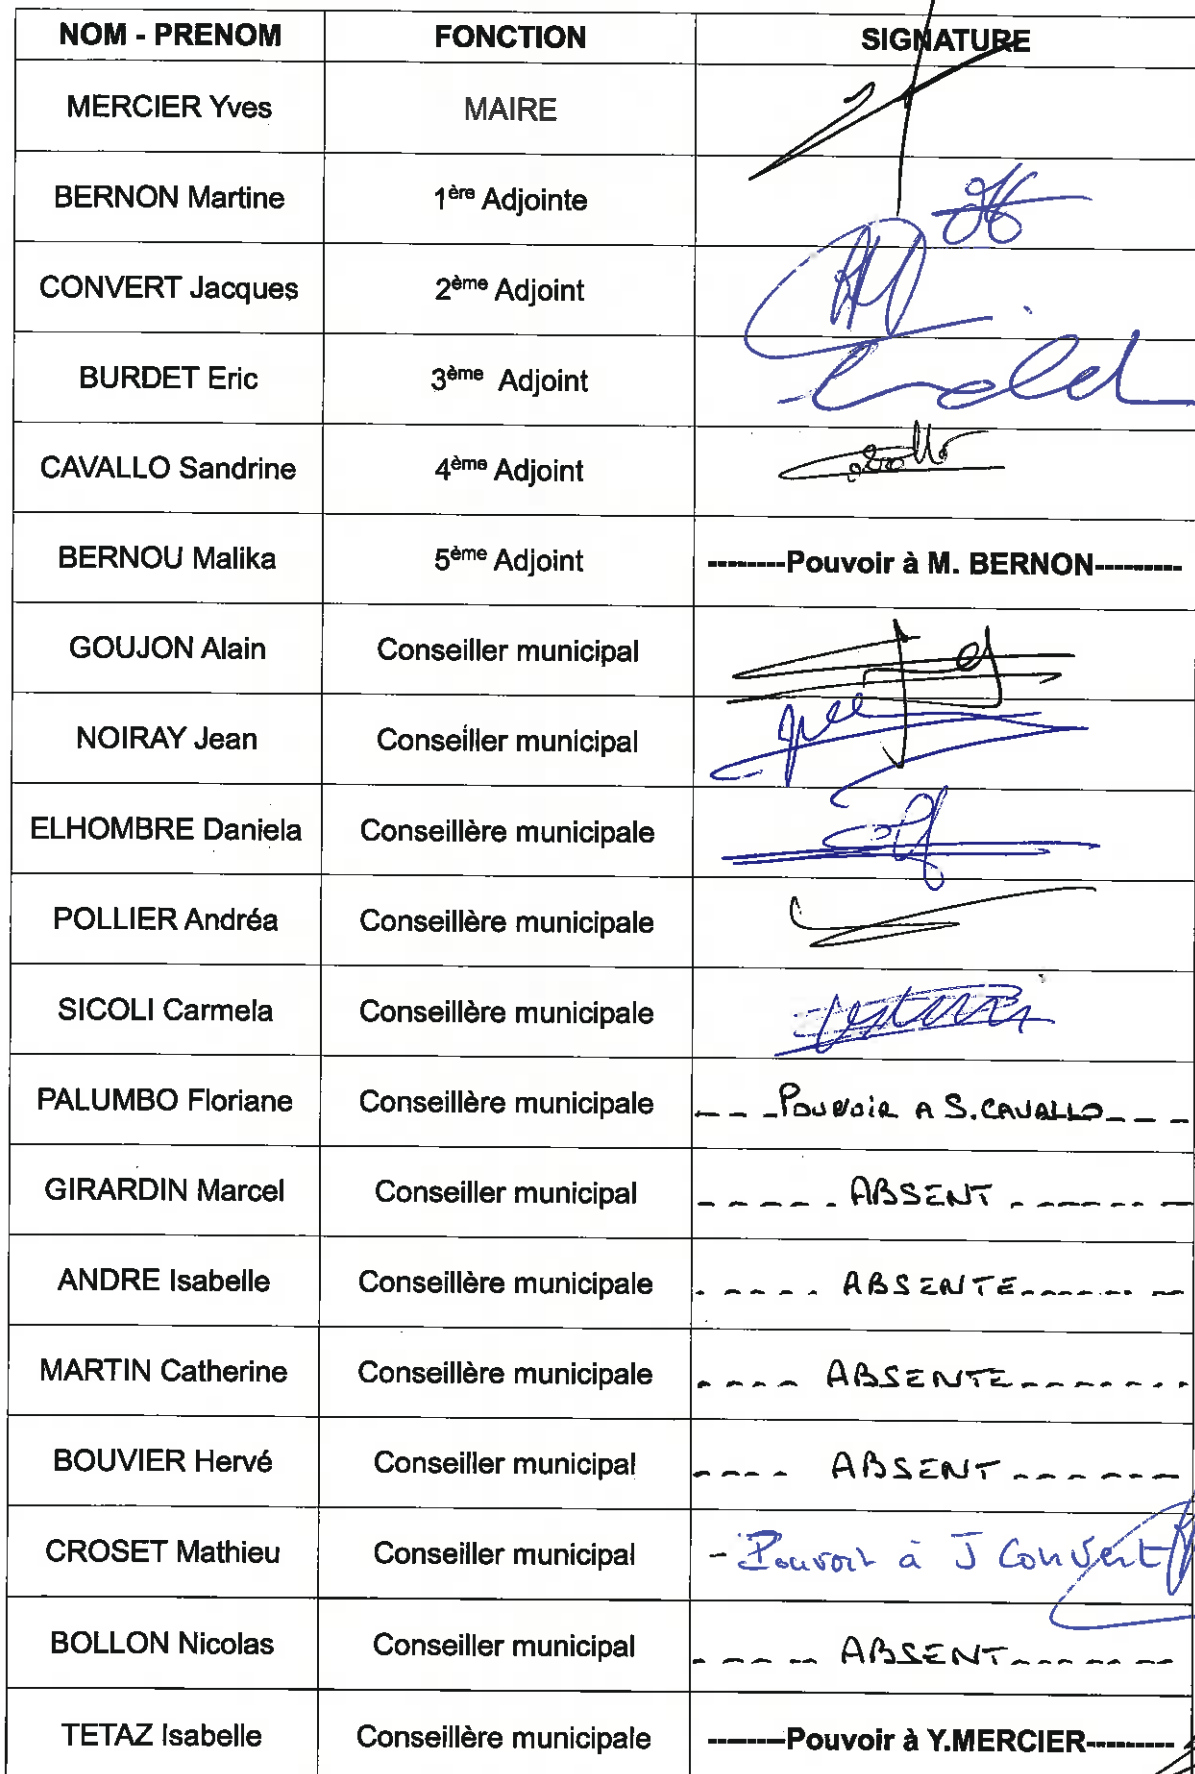 NOM - PRENOM FONCTION SIGNATURE
MERCIER Yves MAIRE
BERNON Martine 1ère Adjointe
CONVERT Jacques 2ème Adjoint
BURDET Eric 3ème Adjoint
CAVALLO Sandrine 4ème Adjoint
BERNOU Malika 5ème Adjoint --------Pouvoir à M. BERNON---------
GOUJON Alain Conseiller municipal
NOIRAY Jean Conseiller municipal
ELHOMBRE Daniela Conseillère municipale
POLLIER Andréa Conseillère municipale
SICOLI Carmela Conseillère municipale
PALUMBO Floriane Conseillère municipale - - - Pouvoir A S. CAVALLO - - - -
GIRARDIN Marcel Conseiller municipal - - - - - ABSENT - - - - - - -
ANDRE Isabelle Conseillère municipale - - - - - ABSENTE - - - - - - - -
MARTIN Catherine Conseillère municipale - - - - ABSENTE - - - - - - - -
BOUVIER Hervé Conseiller municipal - - - - ABSENT - - - - - - -
CROSET Mathieu Conseiller municipal - Pouvoir à J Convert
BOLLON Nicolas Conseiller municipal - - - - - ABSENT - - - - - - -
TETAZ Isabelle Conseillère municipale --------Pouvoir à Y.MERCIER---------